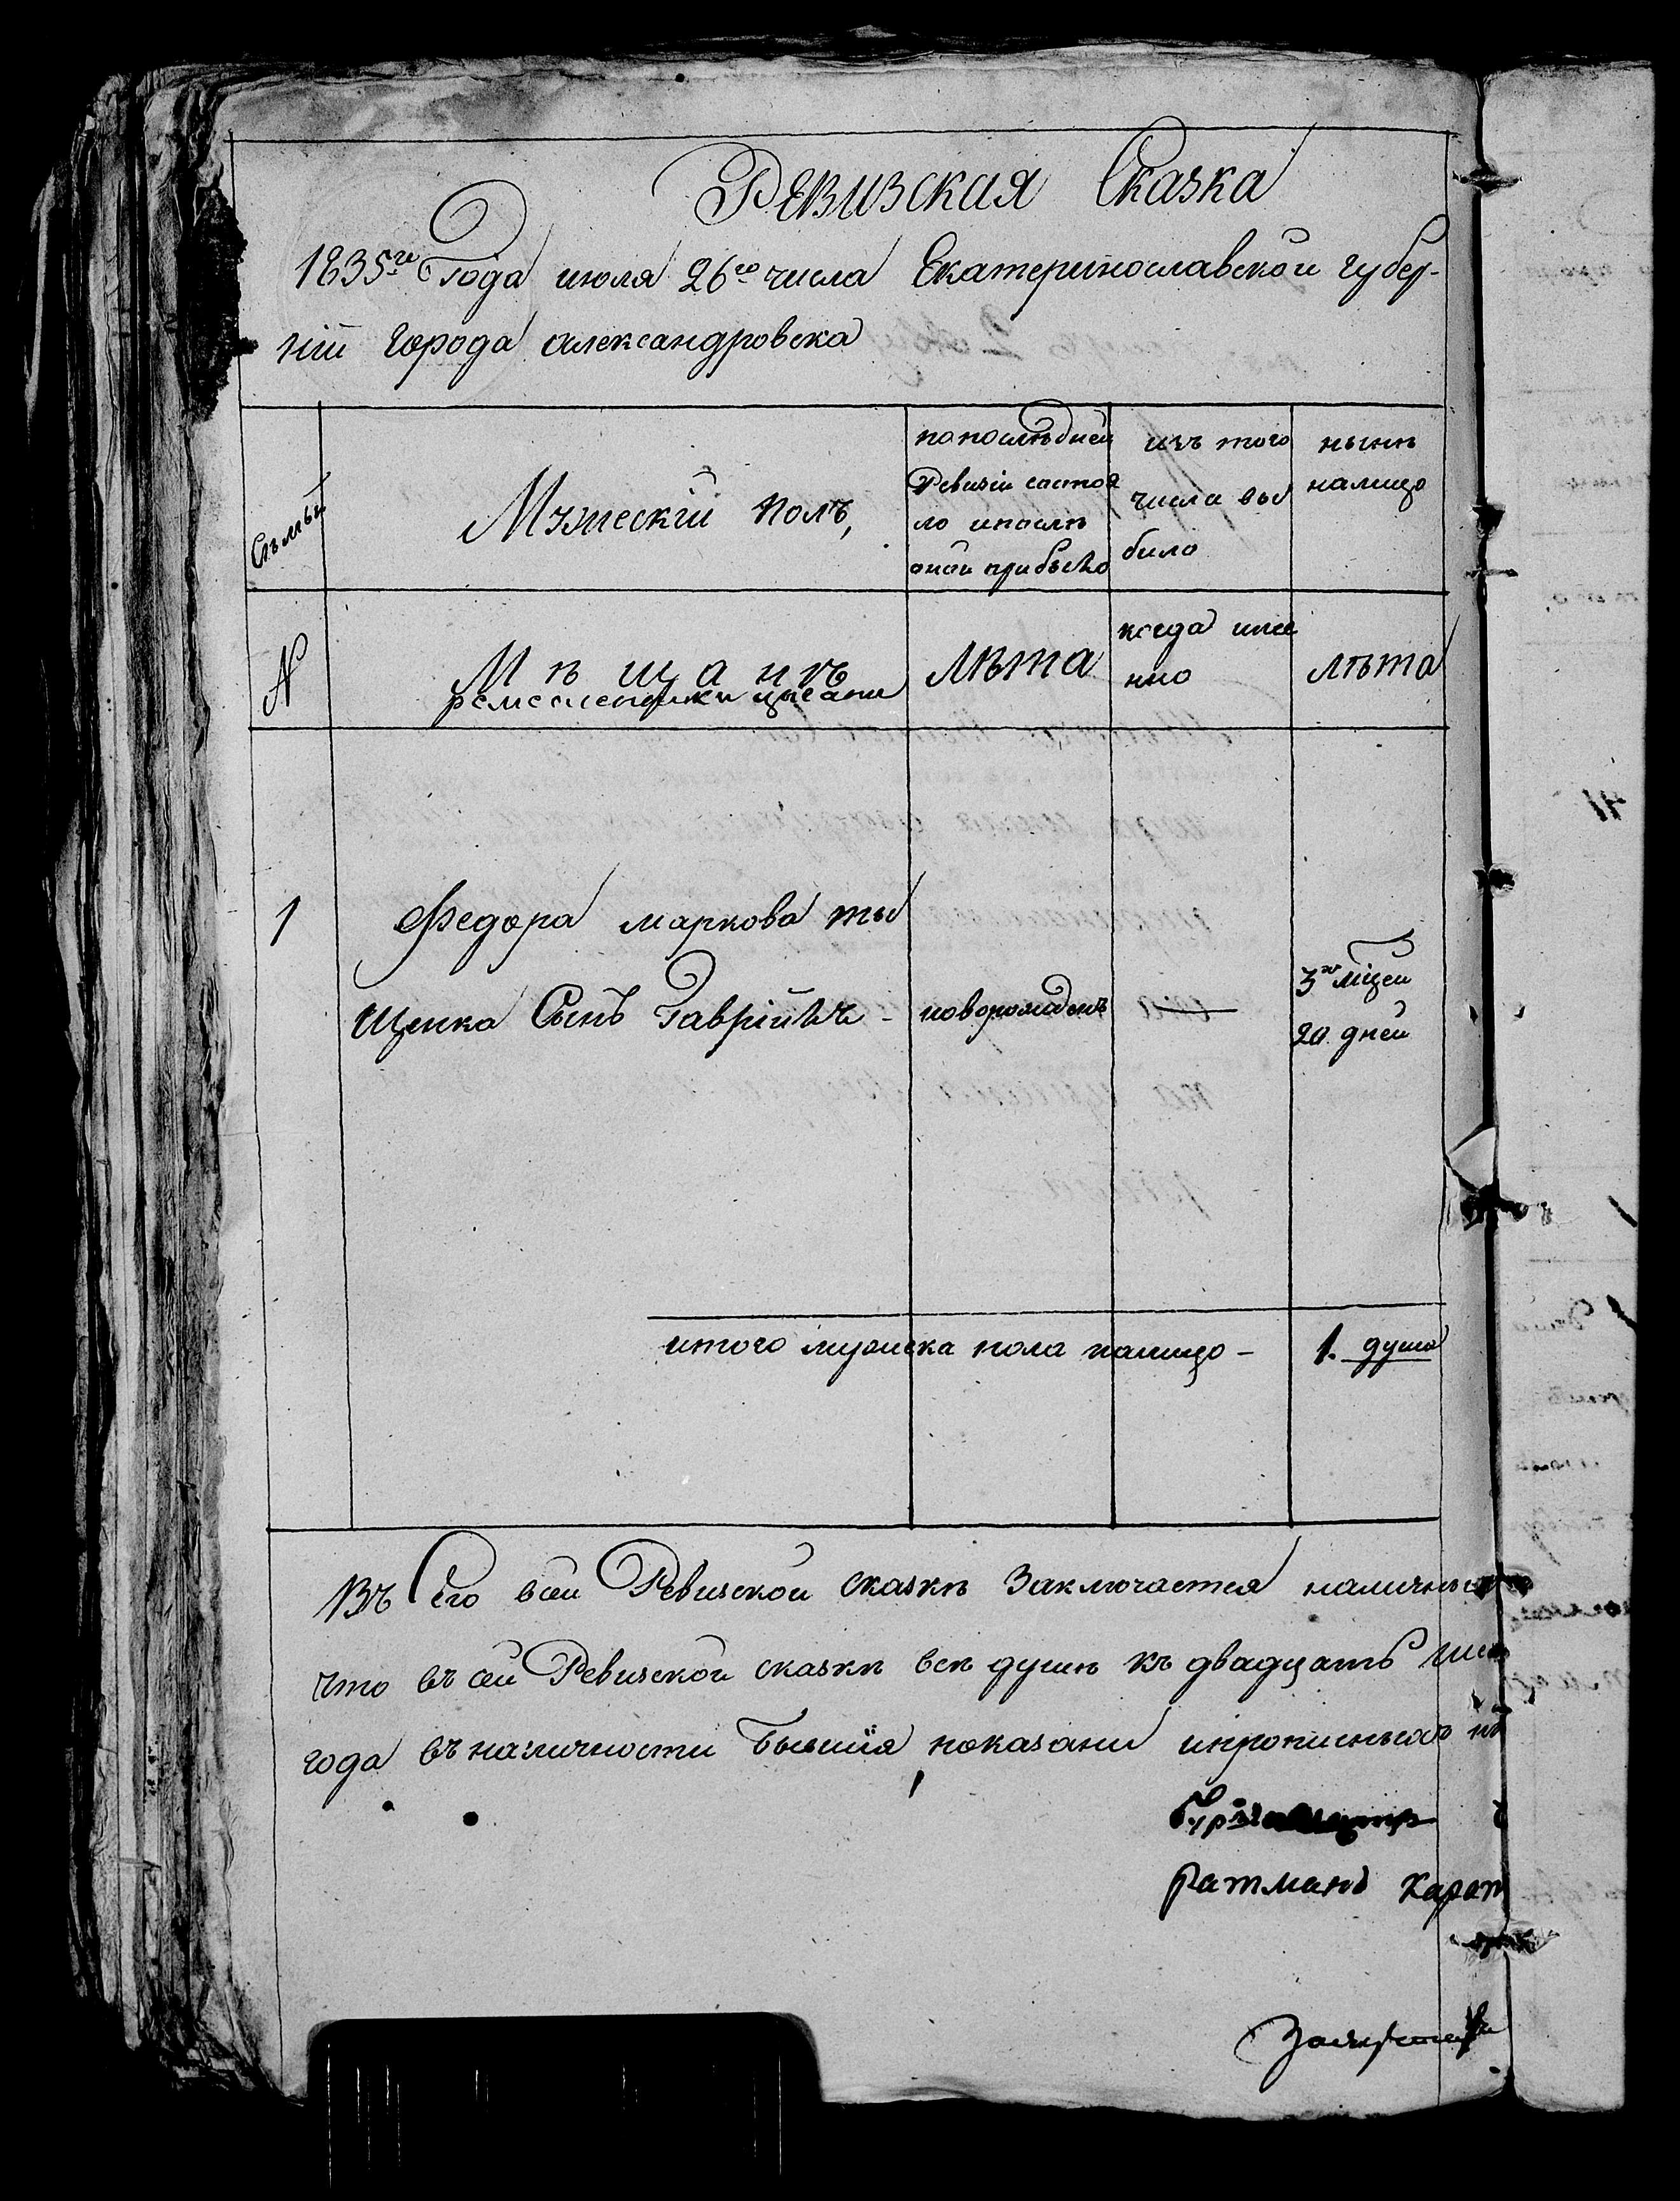 Ревизская Сказка
1835го Года июля 26го числа Екатеринославской губер-
нїи города александровска
Съмьи
Мужескїй полъ,
попослѣдней
Ревизіи состоя
ло ипослѣ
оной прибыло
изъ того
числа вы
было
нынѣ
налицо
№
Мѣщанъ
ремесленники цыгани
Лѣта
когда име
нно
лѣта
1
Федора маркова ты
щенка Сынъ Гаврїилъ -
новорожденъ
3 мцей
20 дней
итого мужеска пола налицо -
1. душа
Въ всей Ревизской сказкѣ Заключается
что въ сей Ревизской сказкѣ всѣ душѣ къ двадцать
года въ наличности бывшїя показани ипрописныхъ
Ратманъ